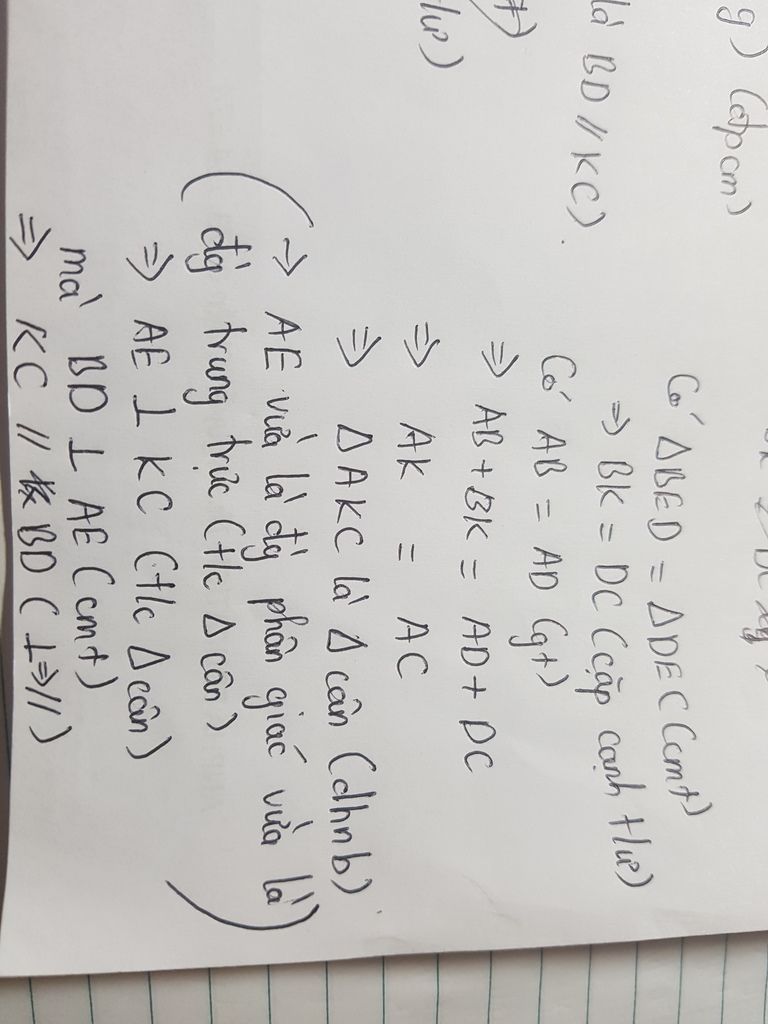 g) (đpcm)
là BD // KC).
t)
t/ư)
Có ΔBED = ΔDEC (cmt)
⇒ BK = DC (cặp cạnh t/ư)
Có AB = AD (gt)
⇒ AB + BK = AD + DC
⇒ AK = AC
⇒ ΔAKC là Δ cân (dhnb)
(→ AE vừa là đg̀ phân giác vừa là
đg̀ trung trực (t/c Δ cân))
⇒ AE ⊥ KC (t/c Δ cân)
mà BD ⊥ AE (cmt)
⇒ KC // BD (⊥⇒//)